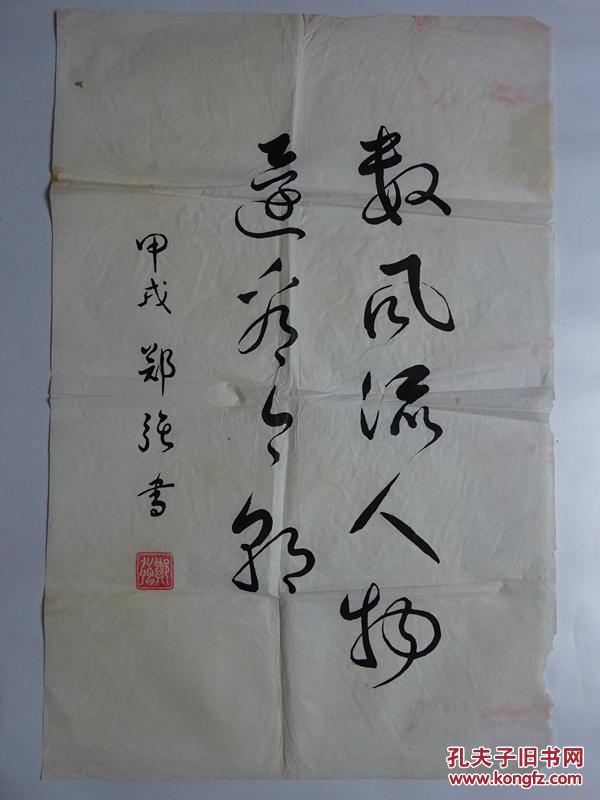 数风流人物
还看今朝
甲戌 郑强书
郑强
孔夫子旧书网
www.kongfz.com